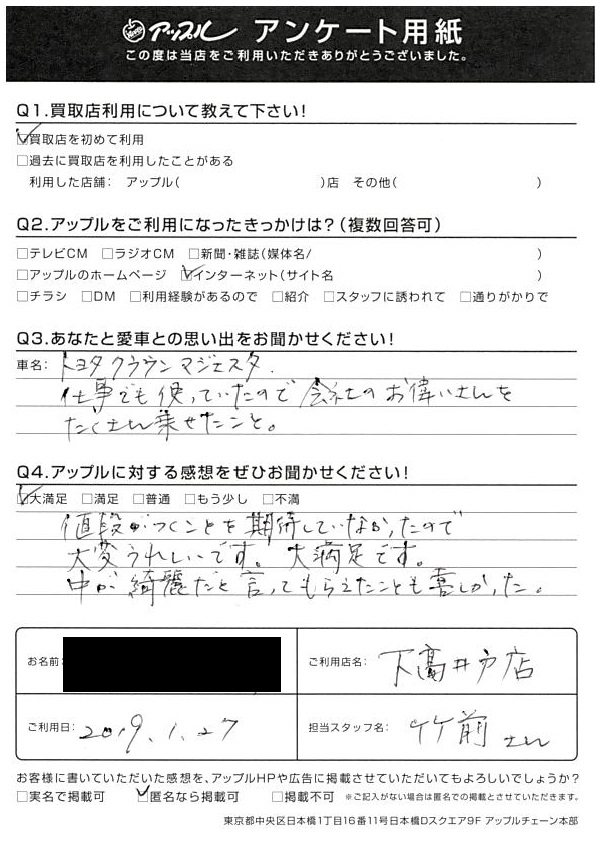 アップル アンケート用紙
この度は当店をご利用いただきありがとうございました。
Q1.買取店利用について教えて下さい!
☑買取店を初めて利用
□過去に買取店を利用したことがある
利用した店舗: アップル( )店 その他( )
Q2.アップルをご利用になったきっかけは?(複数回答可)
□テレビCM □ラジオCM □新聞・雑誌(媒体名/ )
□アップルのホームページ ☑インターネット(サイト名 )
□チラシ □DM □利用経験があるので □紹介 □スタッフに誘われて □通りがかりで
Q3.あなたと愛車との思い出をお聞かせください!
車名: トヨタクラウンマジェスタ.
仕事でも使っていたので会社のお偉いさんを
たくさん乗せたこと。
Q4.アップルに対する感想をぜひお聞かせください!
☑大満足 □満足 □普通 □もう少し □不満
値段がつくことを期待していなかったので
大変うれしいです。大満足です。
中が綺麗だと言ってもらえたことも喜しかった。
お名前:
ご利用店名: 下高井戸店
ご利用日: 2019.1.27
担当スタッフ名: 竹前さん
お客様に書いていただいた感想を、アップルHPや広告に掲載させていただいてもよろしいでしょうか?
□実名で掲載可 ☑匿名なら掲載可 □掲載不可 ※ご記入がない場合は匿名での掲載とさせていただきます。
東京都中央区日本橋1丁目16番11号日本橋Dスクエア9F アップルチェーン本部